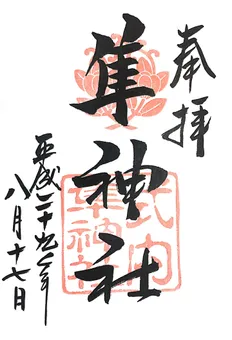 奉拝
隼神社
平成二十九年
八月十七日
式内
隼神社